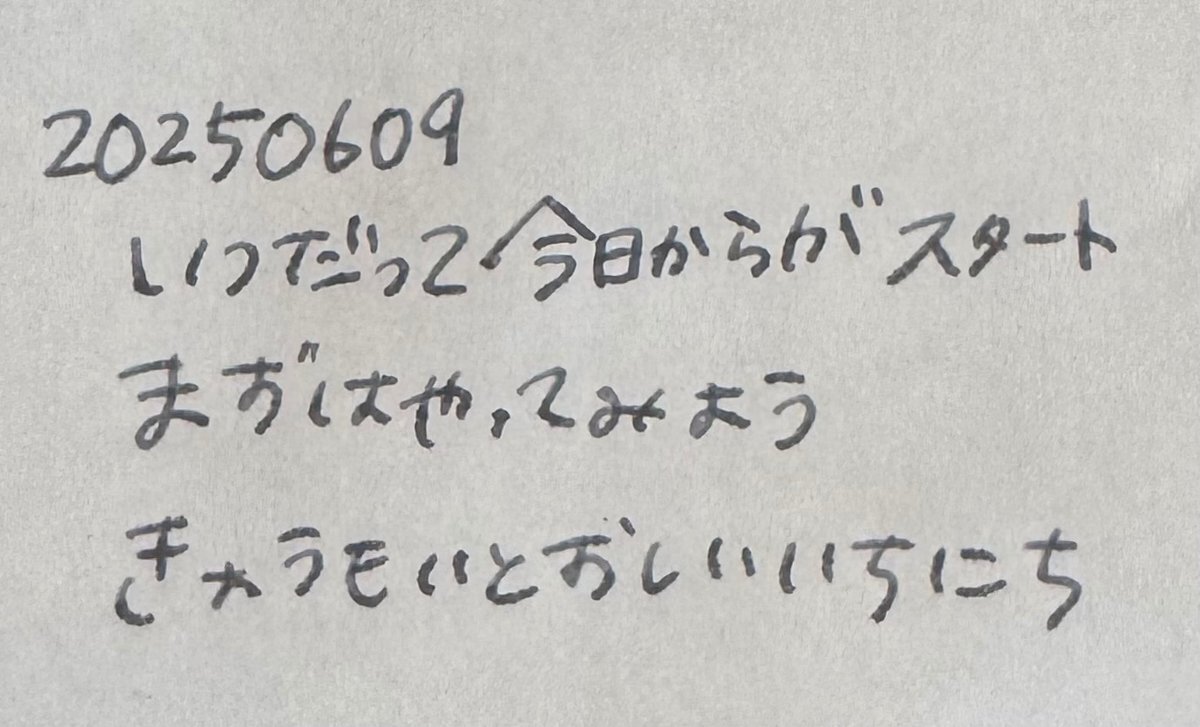 20250609
いつだって今日からがスタート
まずはやってみよう
きょうもいとおしいいちにち